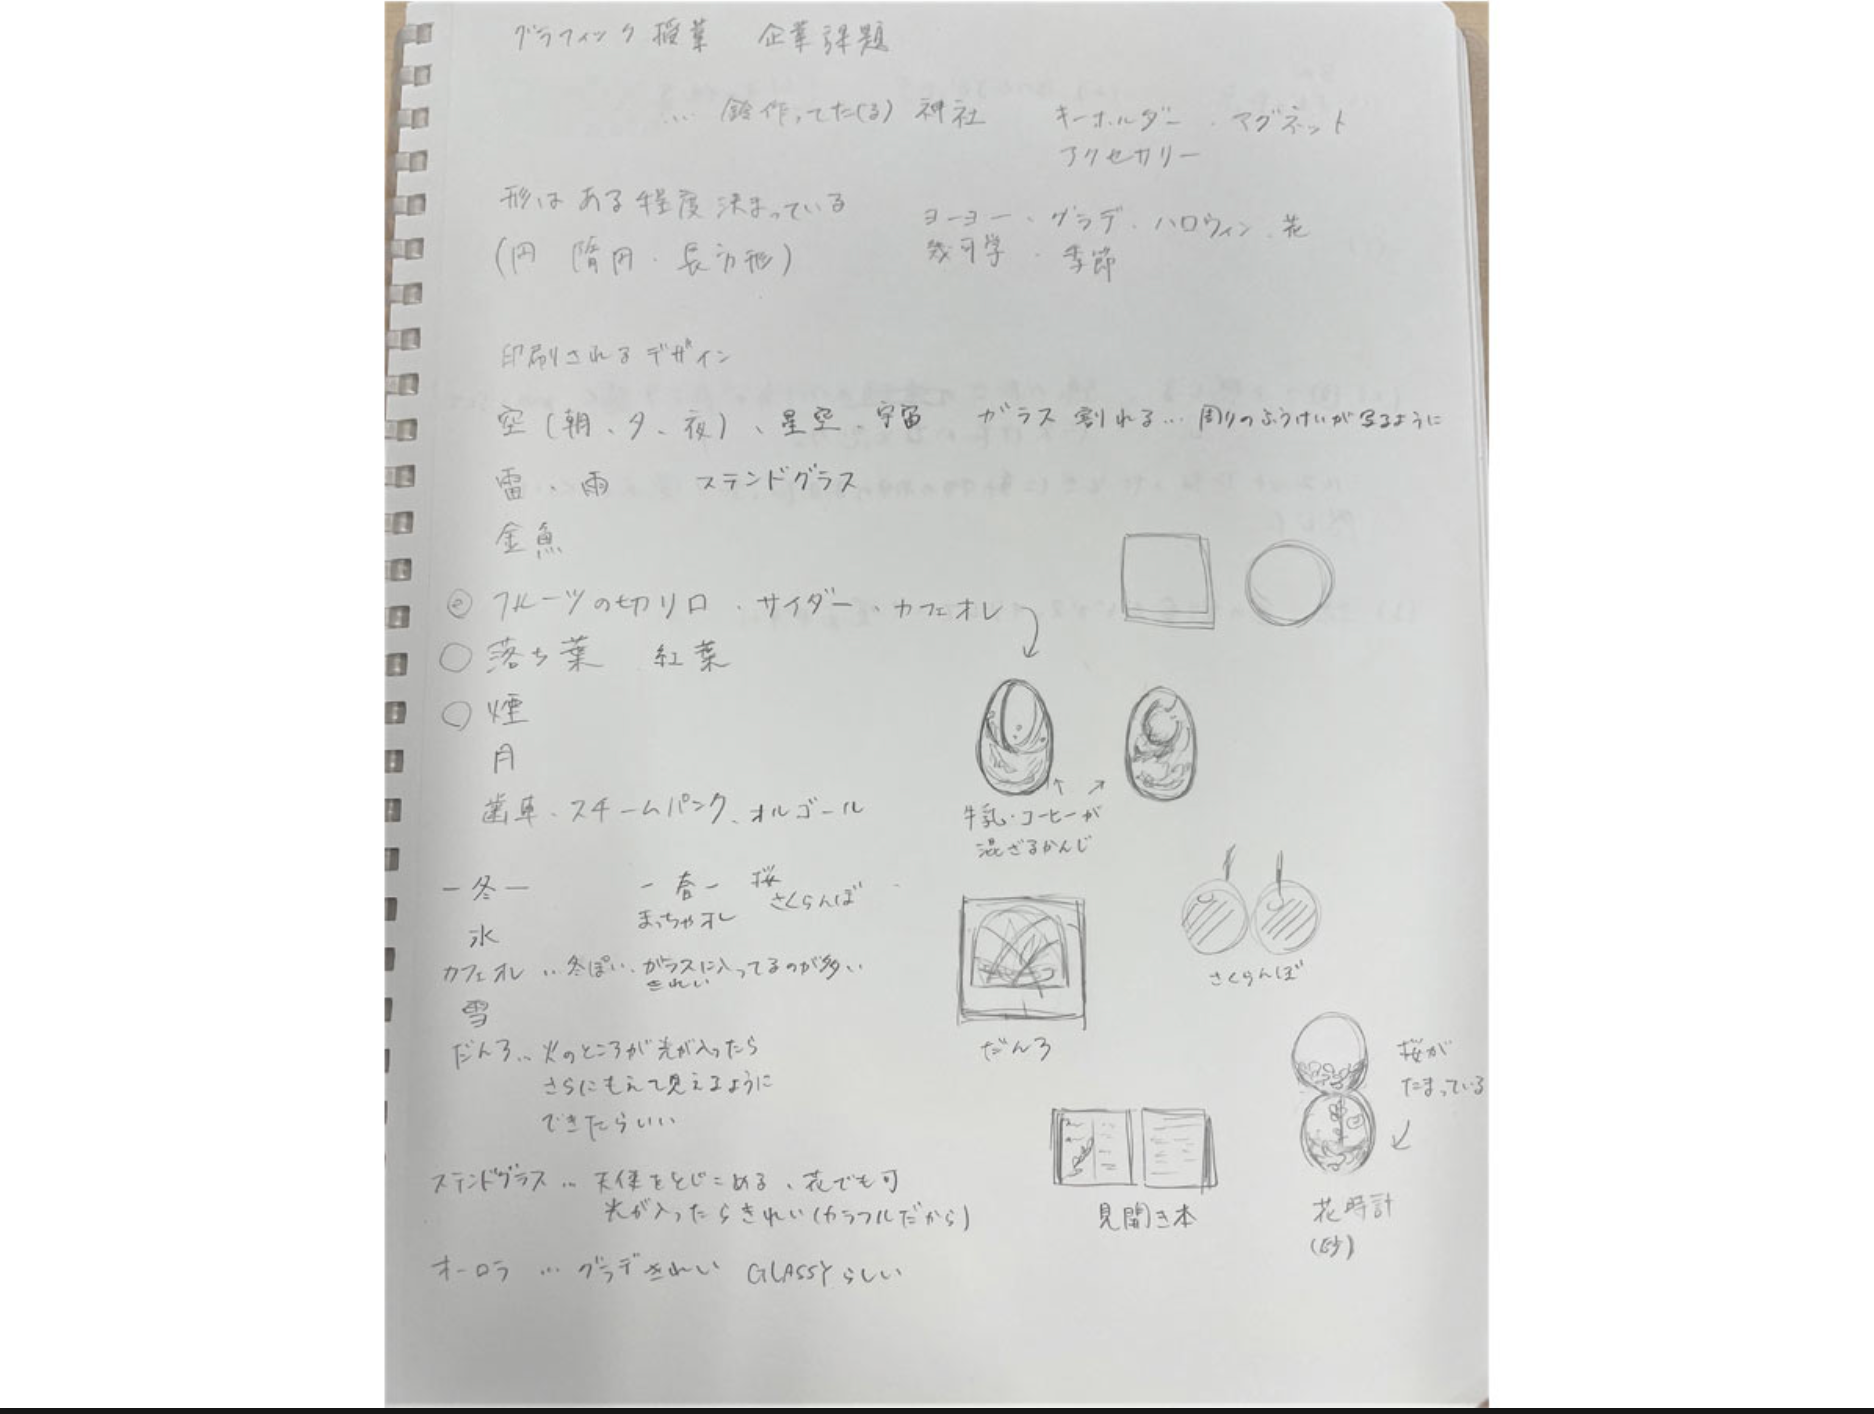 グラフィック授業 企業課題
… 鈴作ってた(る) 神社
キーホルダー・マグネット
アクセサリー
形はある程度決まっている
(円 隋円・長方形)
ヨーヨー、グラデ・ハロウィン、花
幾可学・季節
印刷されるデザイン
空(朝、夕、夜)、星空、宇宙 ガラス 割れる… 周りのふうけいが写るように
雷、雨 ステンドグラス
金魚
◎ フルーツの切り口・サイダー・カフェオレ
○ 落ち葉 紅葉
○ 煙
月
歯車・スチームパンク、オルゴール
牛乳・コーヒーが
混ざるかんじ
ー冬ー
氷
カフェオレ … 冬ぽい、ガラスに入ってるのが多い
きれい
雪
だんろ… 火のところが光が入ったら
さらにもえて見えるように
できたらいい
ー春ー 桜
さくらんぼ
まっちゃオレ
さくらんぼ
だんろ
桜が
たまっている
見開き本
花時計
(砂)
ステンドグラス … 天使をとじこめる、花でも可
光が入ったらきれい(カラフルだから)
オーロラ … グラデきれい GLASSYらしい